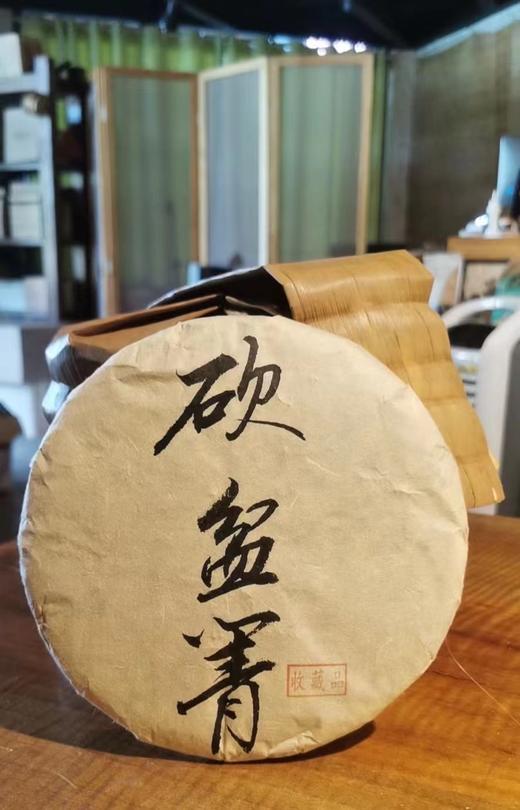 砍
盆
箐
收藏品